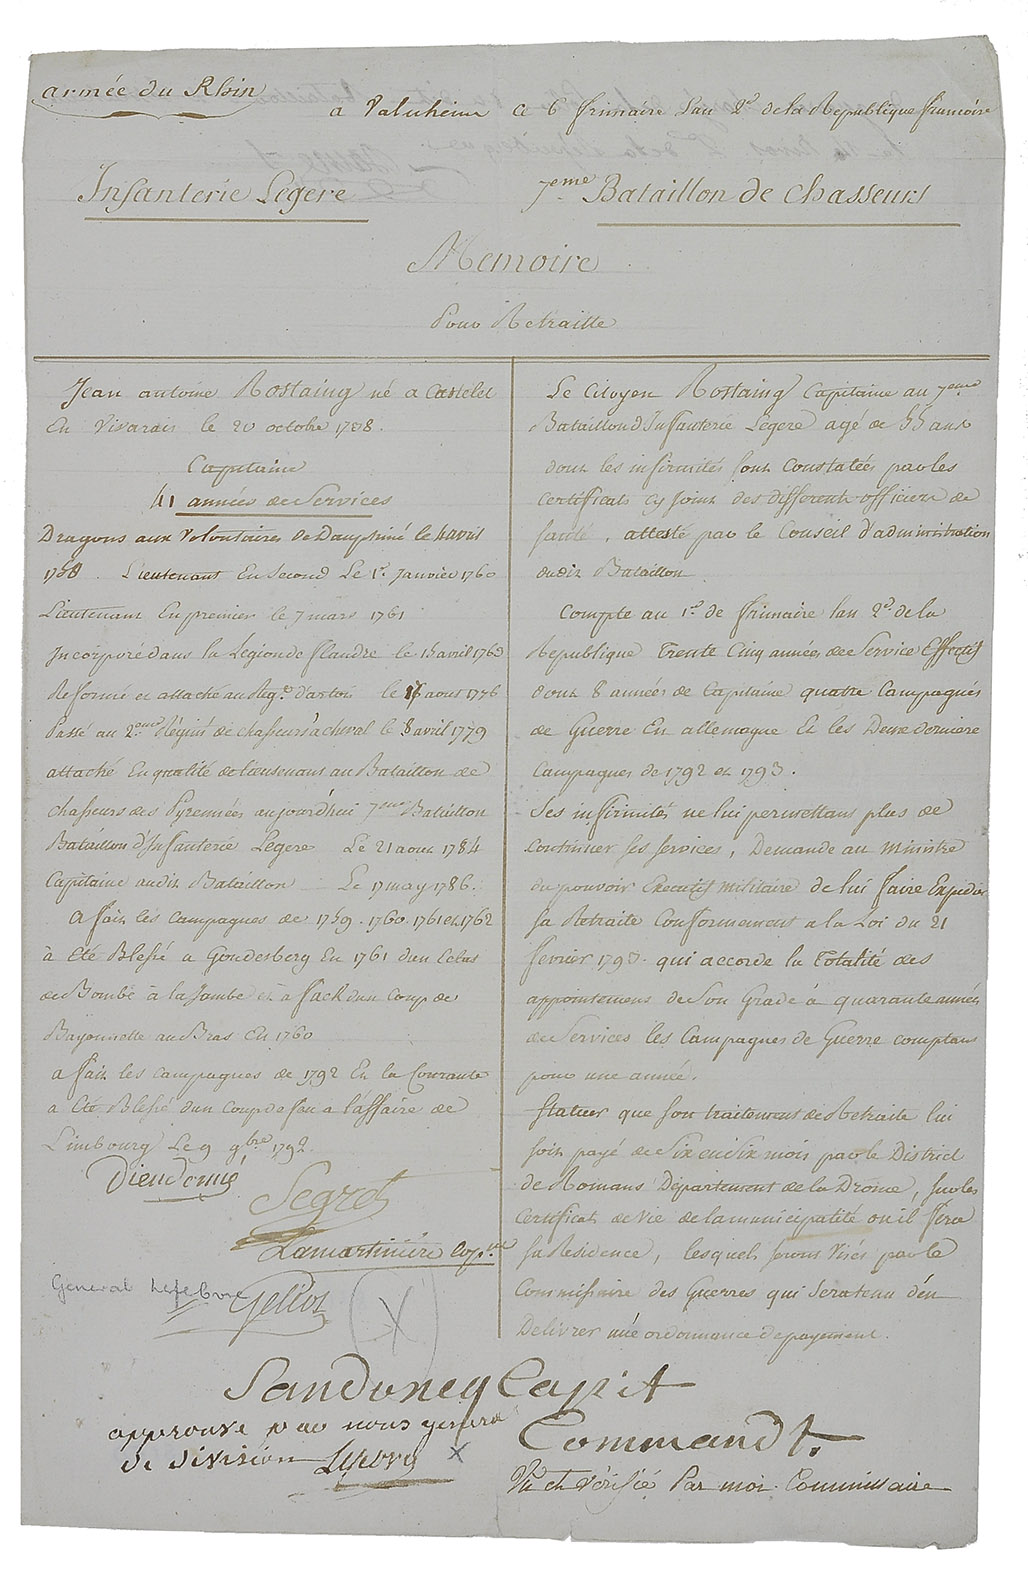 armée du Rhin
a Valuheim Ce 6 frimaire l'an 2e de la Republique francoise
Infanterie Legere
7eme Bataillon de Chasseurs
Memoire
Pour Retraitte
Jean antoine Rostaing né a Castelet
En Vivarais le 20 octobre 1738.
Capitaine
41 années de Services
Dragons aux Volontaires de Dauphiné le 4 avril
1758. Lieutenant En Second Le 1er Janvier 1760
Lieutenant En premier le 7 mars 1761
Incorporé dans la Legion de flandre le 15 avril 1763
Reformé et attaché au Regt d'artois le 16 aout 1776
Passé au 2eme Régimt de chasseurs a cheval le 8 avril 1779
attaché En qualité de lieutenant au Bataillon de
chasseurs des Pyrennées aujourd'hui 7eme Bataillon
Bataillon d'Infanterie Legere Le 21 aout 1784
Capitaine audit Bataillon Le 17 may 1786.
A fait les Campagnes de 1759. 1760. 1761 et 1762
à Eté Blessé a Goudesberg En 1761 d'un Eclat
de Bombe à la Jambe et a fack d'un Coup de
Bayonnette au Bras En 1760
a fait les campagnes de 1792 Et la Courante
a Eté Blessé d'un Coup de feu a l'affaire de
Limbourg Le 9 9bre 1792.
Dieudonné
Segret
Lamartiniere Capne
General Lefebvre
Gelliot
Le Citoyen Rostaing Capitaine au 7eme
Bataillon d'Infanterie Legere agé de 55 ans
dont les infirmités sont Constatées par les
Certificats Cy joint des differents officiers de
santé, attesté par le Conseil d'administration
dudit Bataillon
Compte au 1er de frimaire l'an 2e de la
Republique Trente Cinq années de Service Effectif
dont 8 années de Capitaine quatre Campagnes
de Guerre En allemagne Et les Deux derniere
Campagnes de 1792 et 1793.
Ses infirmités ne lui permettant plus de
Continuer ses services, Demande au Ministre
du pouvoir Executif militaire de lui faire Expedier
sa Retraite Conformement a la Loi du 21
fevrier 1793. qui accorde la Totalité des
appointemens de Son Grade à quarante années
de Services les Campagnes de Guerre comptant
pour une année.
Statuer que son traitement de Retraite lui
soit payé de Six en Six mois par le District
de Romans Département de la Drome, sur les
Certificats de Vie de la municipalité ou il fera
sa Residence, lesquels seront Visés par le
Commissaire des Guerres qui sera tenu d'en
Delivrer une ordonnance de payement.
Sanduney Capit
Commandt.
approuvé par nous general
de division
X
Vu et Vérifié Par moi Commissaire